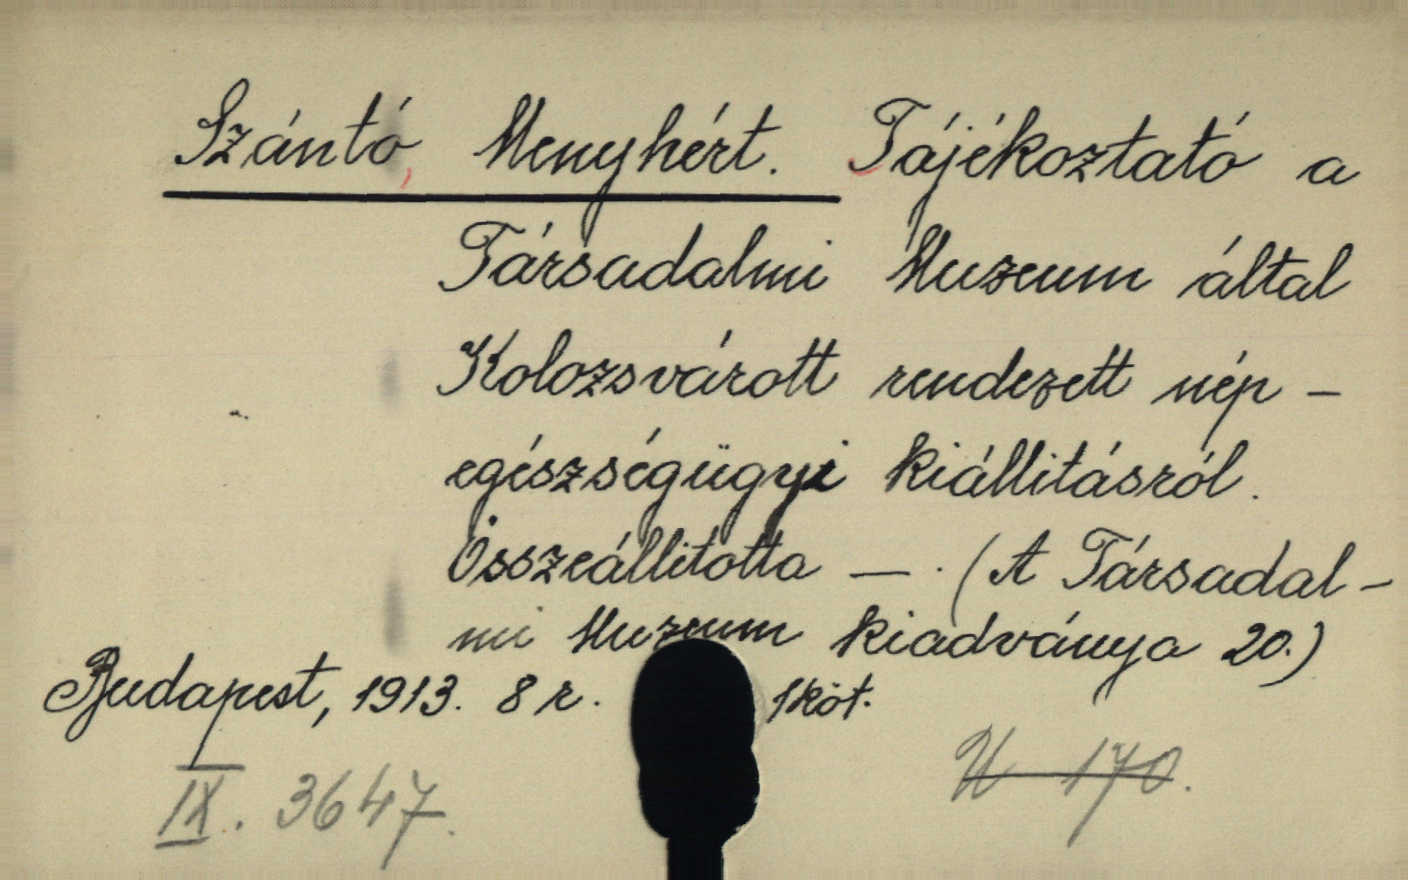 Szántó, Menyhért. Tájékoztató a
Társadalmi Muzeum által
Kolozsvárott rendezett nép-
egészségügyi kiállitásról.
Összeállitotta — . (A Társadal-
mi Muzeum kiadványa 20.)
Budapest, 1913. 8 r. 1 köt.
IX. 3647. U 170.